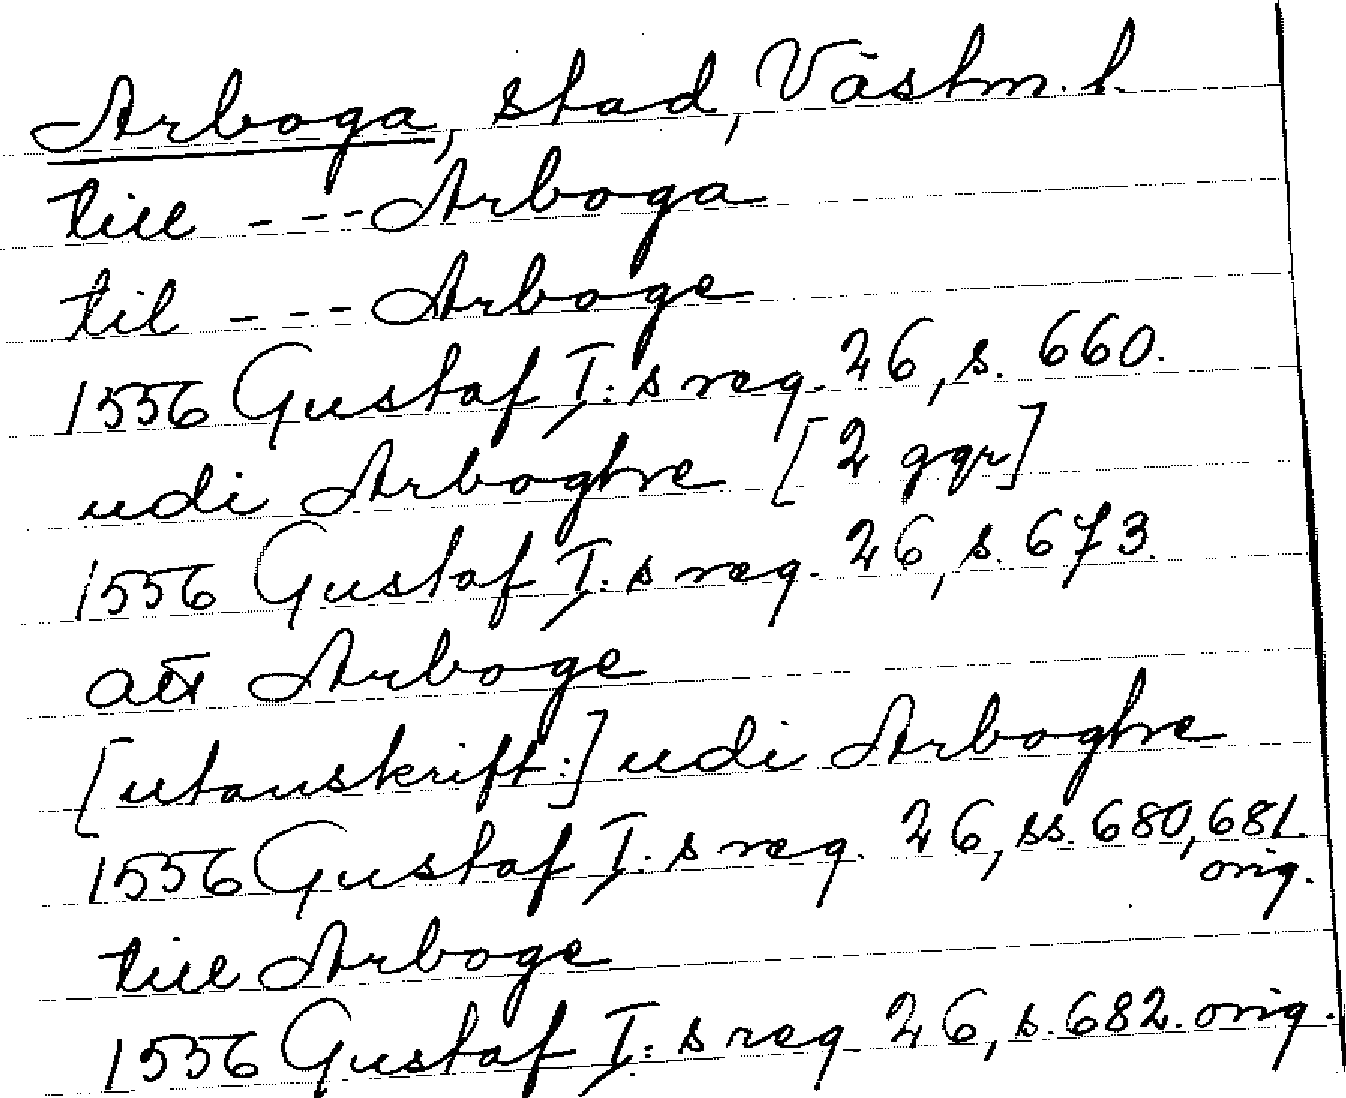 Arboga, stad, Västm. l.
till --- Arboga
til --- Arboge
1556 Gustaf I:s reg. 26, s. 660.
udi Arboghe [2 ggr]
1556 Gustaf I:s reg. 26, s. 673.
att Arboge
[utanskrift:] udi Arboghe
1556 Gustaf I:s reg. 26, ss. 680, 681
orig.
till Arboge
1556 Gustaf I:s reg 26, s. 682. orig.